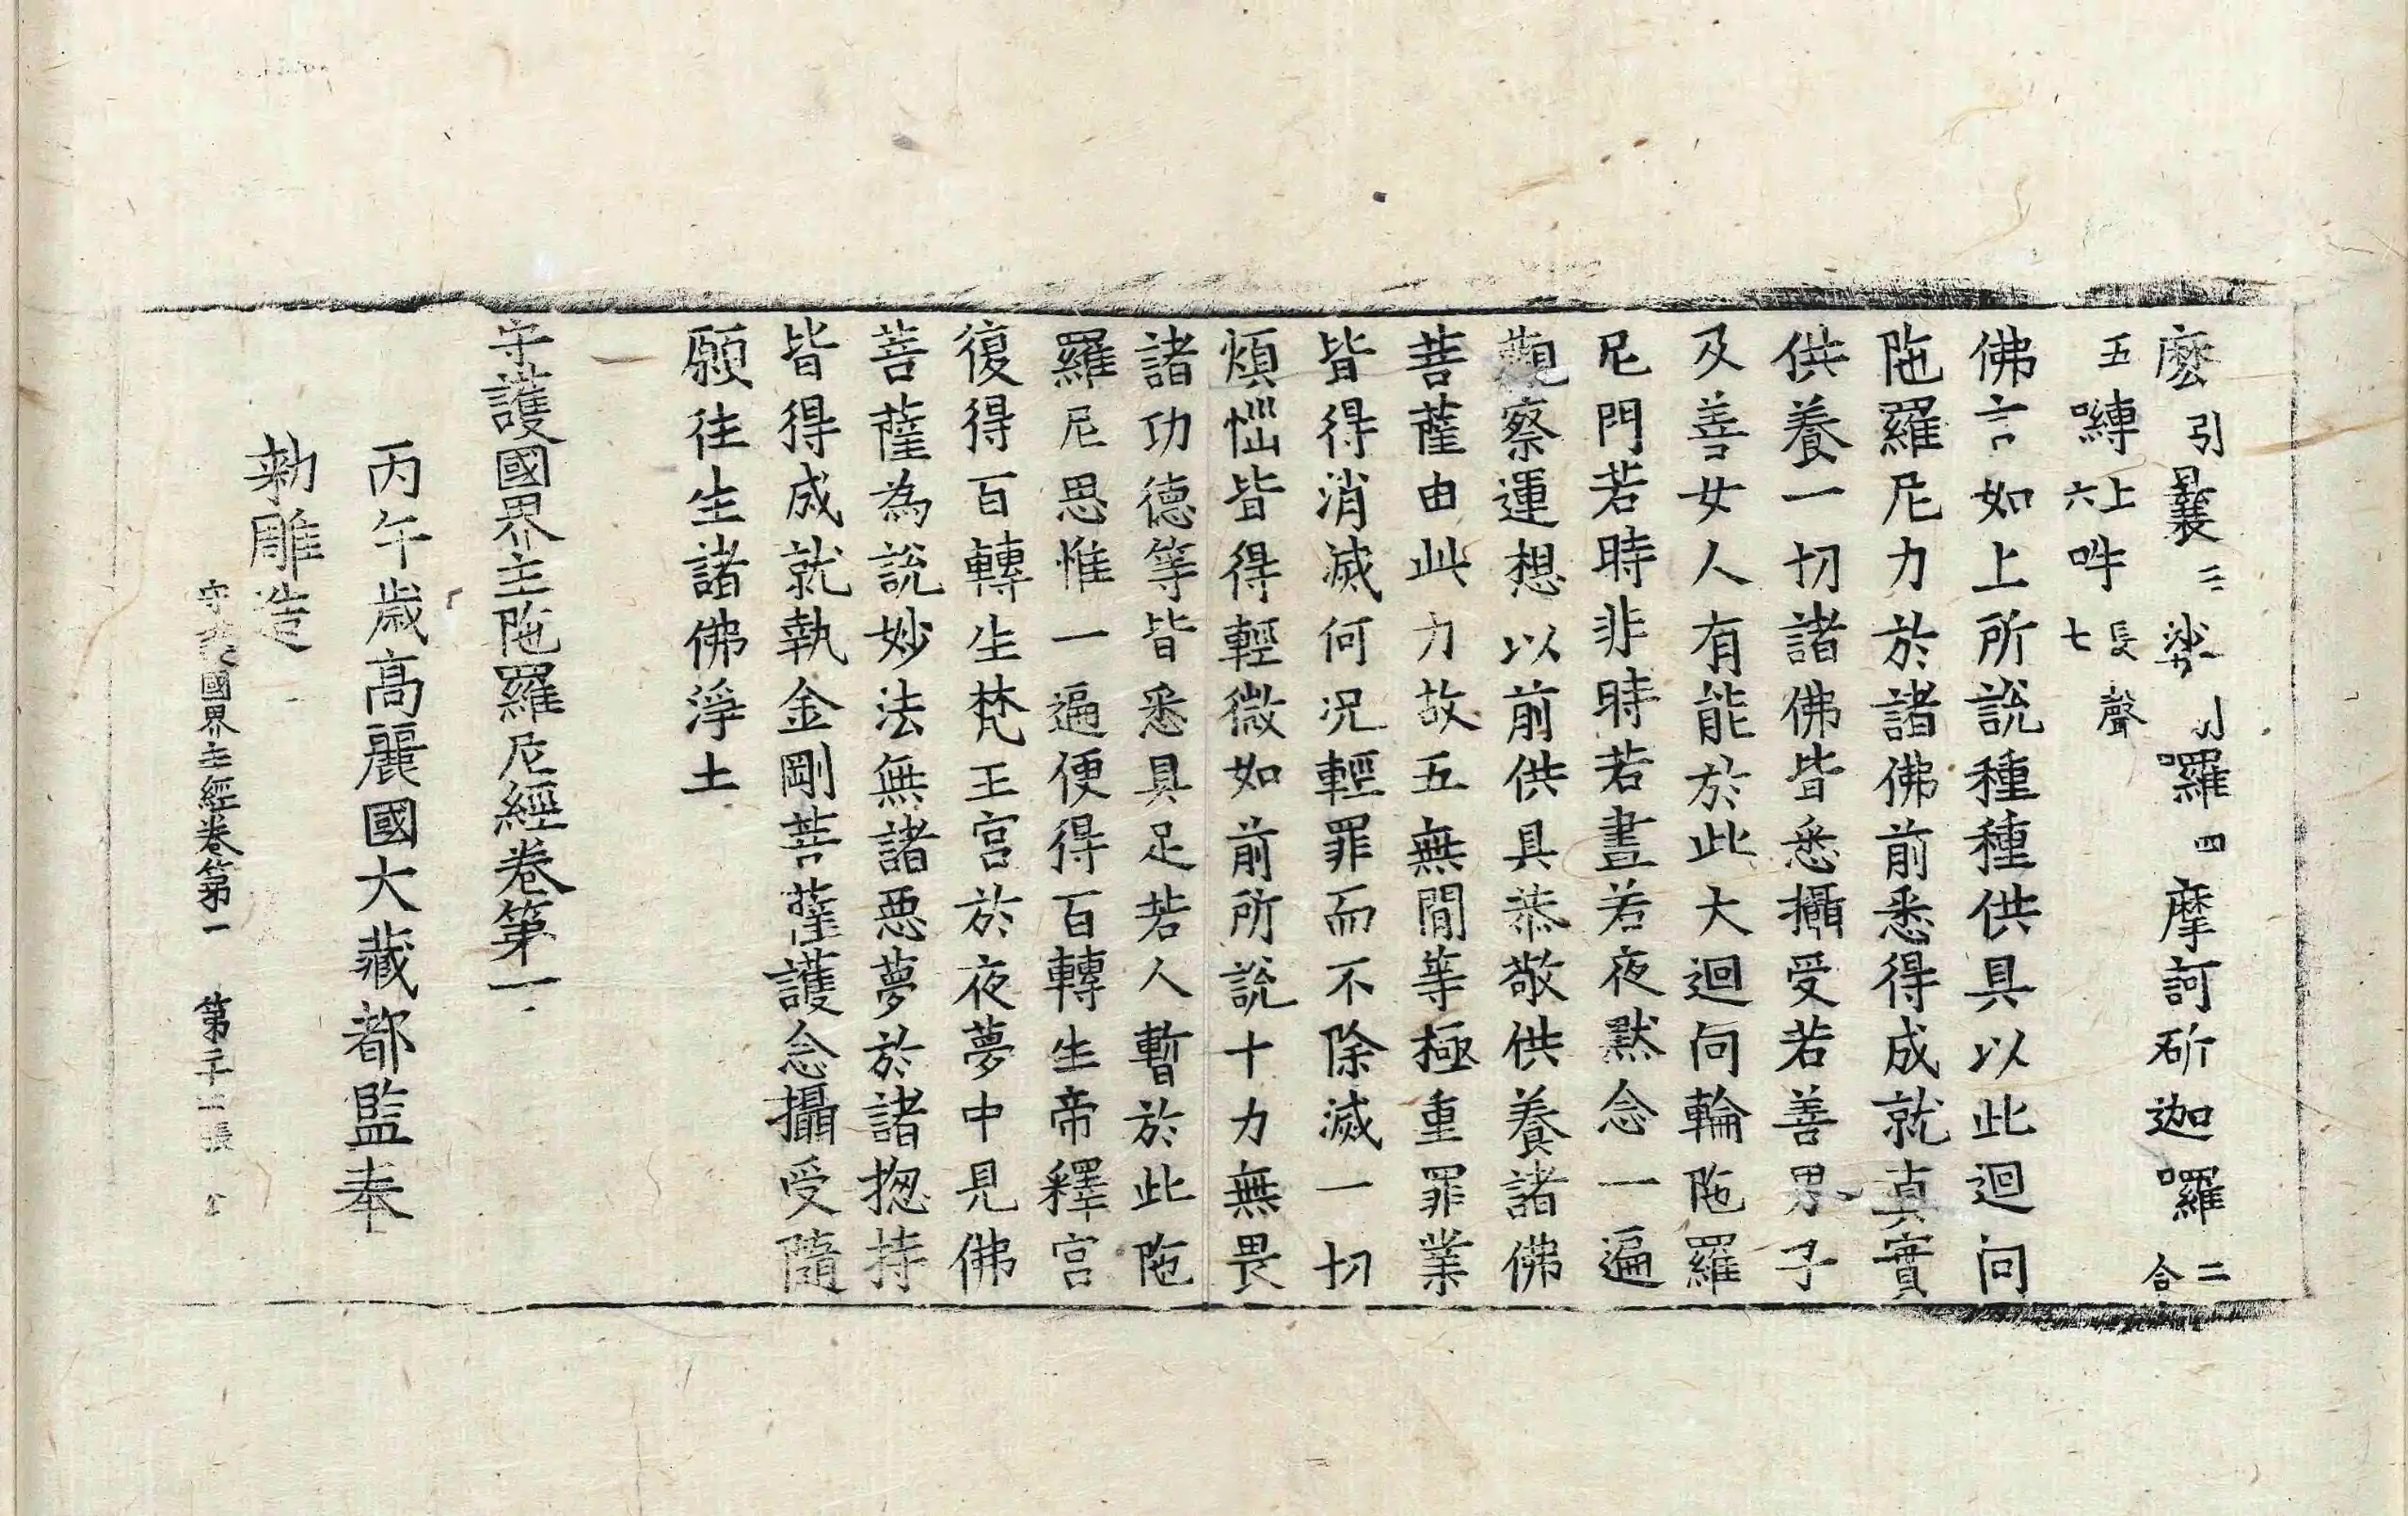 麽引曩三娑引囉四摩訶斫迦囉二合
五嚩上六吽長聲七
佛言如上所說種種供具以此迴向
陁羅尼力於諸佛前悉得成就真實
供養一切諸佛皆悉攝受若善男子
及善女人有能於此大迴向輪陁羅
尼門若時非時若晝若夜默念一遍
觀察運想以前供具恭敬供養諸佛
菩薩由此力故五無間等極重罪業
皆得消滅何況輕罪而不除滅一切
煩惱皆得輕微如前所說十力無畏
諸功德等皆悉具足若人暫於此陁
羅尼思惟一遍便得百轉生帝釋宮
復得百轉生梵王宮於夜夢中見佛
菩薩為說妙法無諸惡夢於諸揔持
皆得成就執金剛菩薩護念攝受隨
願往生諸佛淨土
守護國界主陁羅尼經卷第一
丙午歲高麗國大藏都監奉
勑雕造
守護國界主經卷第一 第二十二張